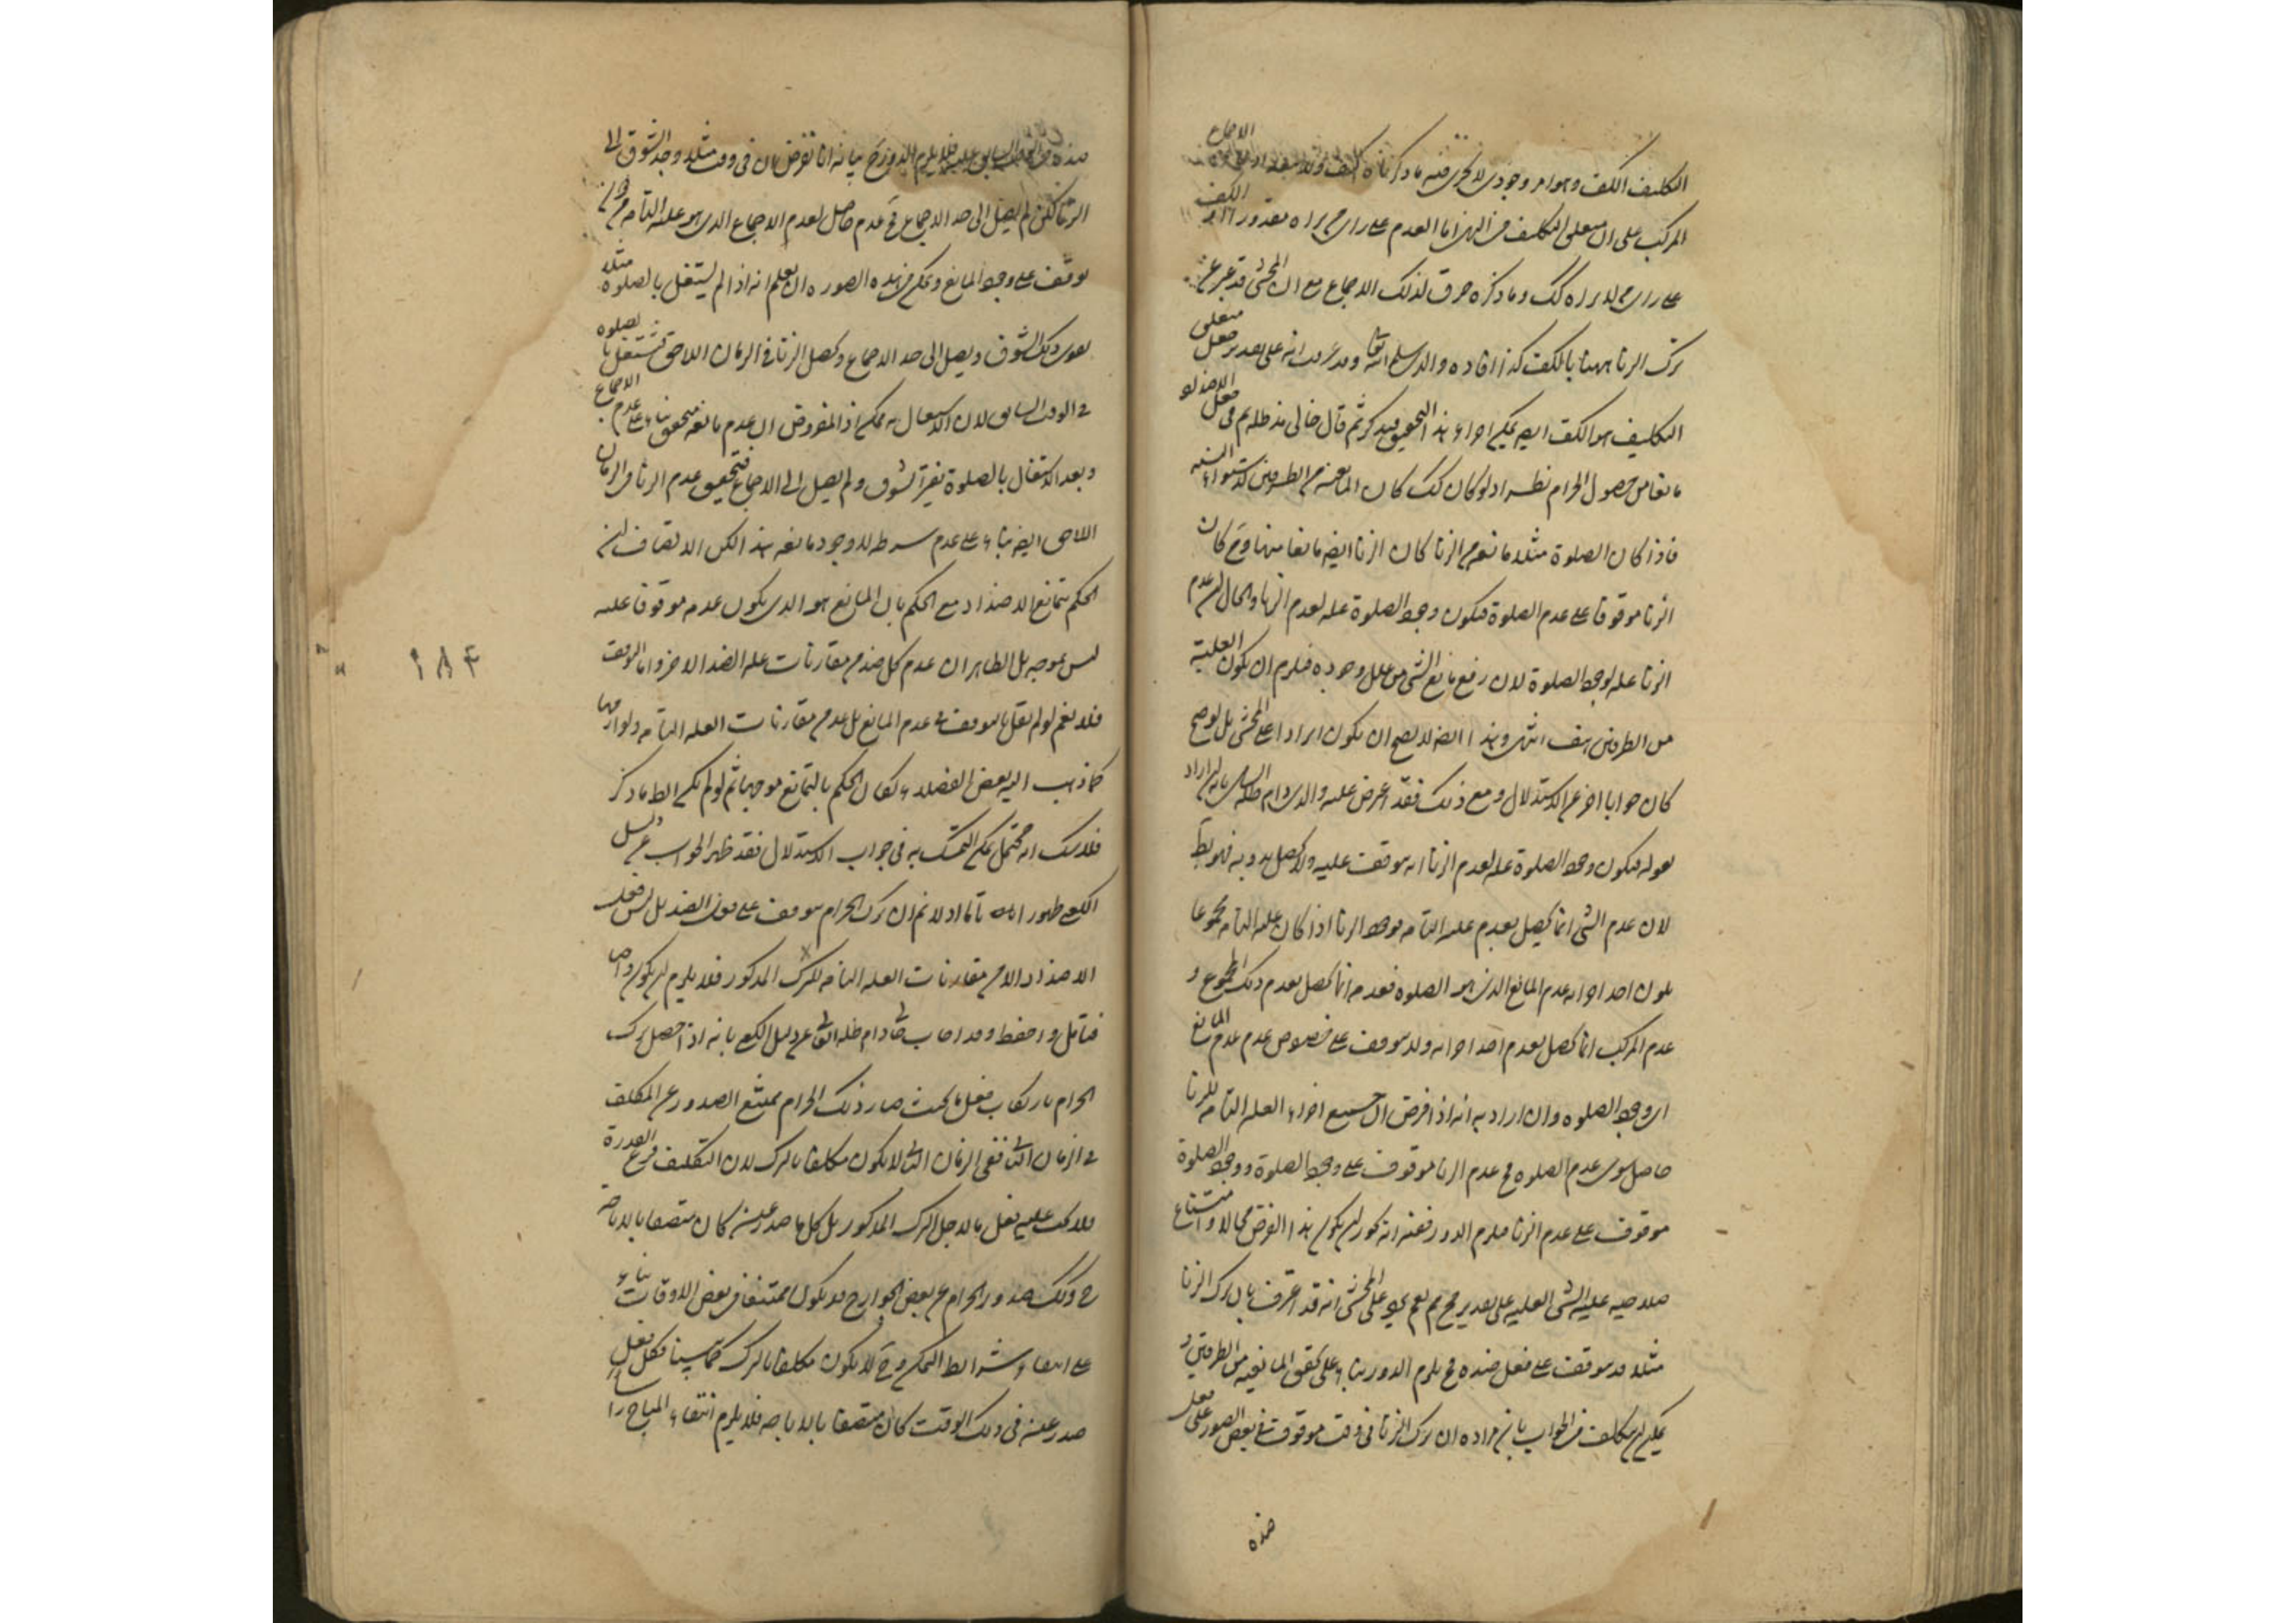 التكليف الكف وهو امر وجودى لا يجرى فيه ما ذكرناه كيف ولا الاجماع
المركب على ان متعلق التكليف فى النهى اما العدم على راى من يراه مقدورا او الكف
على راى من لا يراه كك وما ذكره خرق لذلك الاجماع مع ان المحشى قد عبر عن
ترك الزنا ههنا بالكف كذا افاده والدى سلمه الله تعالى وقد عرفت انه على تقدير جعل متعلق
التكليف هو الكف ايضا يمكن اجراء هذا التحقيق فيه كر ثم قال خالى مد ظله ثم فى جعل الاضداد
مانعا من حصول الحرام نظر اذ لو كان كك كان المانعية من الطرفين لاستواء النسبة
فاذا كان الصلوة مثلا مانعة من الزنا كان الزنا ايضا مانعا منها وح كان
الزنا موقوفا على عدم الصلوة فيكون وجود الصلوة علة لعدم الزنا والحال ان عدم
الزنا علة لوجود الصلوة لان رفع مانع الشى من علل وجوده فيلزم ان يكون العلية
من الطرفين هف انتهى وهذا ايضا لا يصح ان يكون ايرادا على المحشى بل لو صح
كان جوابا اخر عن الاستدلال ومع ذلك فقد اعترض عليه والدى دام ظله بانه ان اراد
بقوله فيكون وجود الصلوة علة لعدم الزنا انه موقوف عليه ولا يحصل بدونه فهو بط
لان عدم الشى انما يحصل بعدم علته التامة فوجود الزنا اذا كان علته التامة مجموعا
يكون احد اجزائه عدم المانع الذى هو الصلوة فعدمه انما يحصل بعدم ذلك المجموع و
عدم المركب انما يحصل بعدم احد اجزائه ولا يتوقف على خصوص عدم عدم المانع
اى وجود الصلوة وان اراد به انه اذا فرض ان جميع اجزاء العلة التامة للزنا
حاصل سوى عدم الصلوة فح عدم الزنا موقوف على وجود الصلوة ووجود الصلوة
موقوف على عدم الزنا فيلزم الدور ففيه انه يجوز ان يكون هذا الفرض محالا وامتناع
صلاحية علية الشى العلية على تقدير مح مم نعم يرد على المحشى انه قد اعترف بان ترك الزنا
مثلا قد يتوقف على فعل ضده فح يلزم الدور بناء على تحقق المانعية من الطرفين و
يمكن ان يتكلف فى الجواب بان مراده ان ترك الزنا فى وقت موقوف فى بعض الصور على فعل
ضده
ضده فى الوقت السابق عليه فلا يلزم الدور ح بيانه انا نفرض ان فى وقت مثلا وجد الشوق الى
الزنا لكن لم يصل الى حد الاجماع فح عدم حاصل لعدم الاجماع الذى هو علة التامة من غير
توقف على وجود المانع ويمكن فى هذه الصورة ان يعلم انه اذا لم يشتغل بالصلوة مثلا
يقوى ذلك الشوق ويصل الى حد الاجماع ويحصل الزنا فى الزمان اللاحق فيشتغل بالصلوة
فى الوقت السابق لان الاشتغال به ممكن اذ المفروض ان عدم مانعه متحقق بناء على عدم الاجماع
وبعد الاشتغال بالصلوة يفتر الشوق ولم يصل الى الاجماع فيتحقق عدم الزنا فى الزمان
اللاحق ايضا بناء على عدم شرطه لا وجود مانعه هذا لكن الانصاف ان
الحكم بتمانع الاضداد مع الحكم بان المانع هو الذى يكون عدمه موقوفا عليه
ليس بموجه بل الظاهر ان عدم كل ضد من مقارنات علة الضد الاخر واما التوقف
فلا نعم لو لم نقل بالتوقف فى عدم المانع بل عده من مقارنات العلة التامة ولوازمها
كما ذهب اليه بعض الفضلاء لكان الحكم بالتمانع موجها ثم لو لم يكن الظ ما ذكر
فلا شك انه محتمل يمكن التمسك به فى جواب الاستدلال فقد ظهر الجواب عن دليل
الكعبى ظهورا تاما اذ لا نم ان ترك الحرام يتوقف على فعل الضد بل ليس فعل
الاضداد الا من مقارنات العلة التامة للترك المذكور فلا يلزم ان يكون واجبا
فتامل واحفظ وقد اجاب خالى دام ظله العالى عن دليل الكعبى بانه اذا حصل ترك
الحرام بارتكاب فعل ما بحيث صار ذلك الحرام ممتنع الصدور عن المكلف
فى الزمان الثانى ففى الزمان الثانى لا يكون مكلفا بالترك لان التكليف فرع القدرة
فلا يجب عليه فعل ما لاجل الترك المذكور بل كل ما صدر عنه كان متصفا بالاباحة
ح وكذلك صدور الحرام عن بعض الجوارح قد يكون ممتنعا فى بعض الاوقات بناء
على انتفاء شرائط التمكن وح لا يكون مكلفا بالترك كما سبق فكل فعل
صدر عنه فى ذلك الوقت كان متصفا بالاباحة فلا يلزم انتفاء المباح راسا
١٨٤